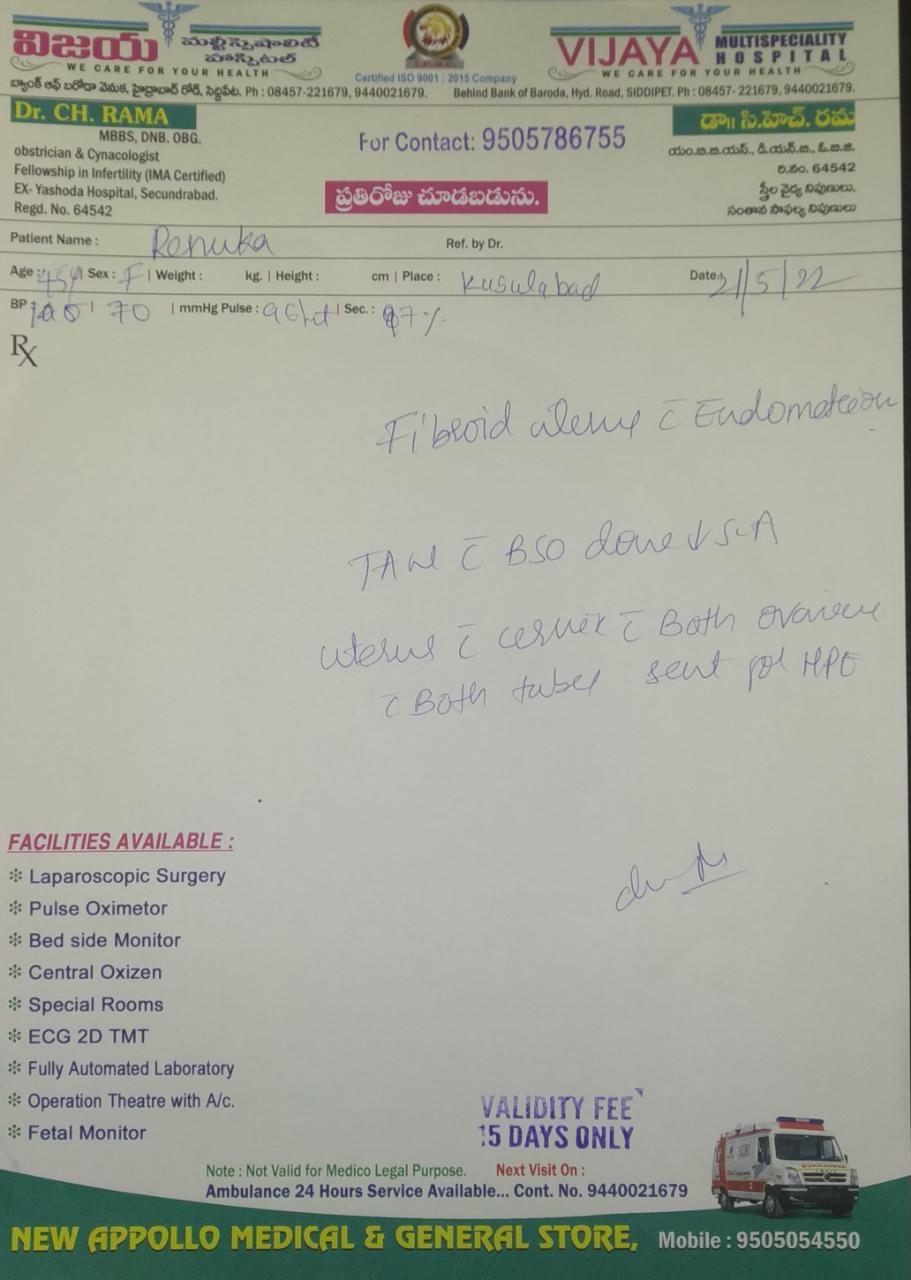 విజయ మల్టీస్పెషాలిటీ హాస్పిటల్
WE CARE FOR YOUR HEALTH
VIJAYA MULTISPECIALITY HOSPITAL
WE CARE FOR YOUR HEALTH
Certified ISO 9001 : 2015 Company
బ్యాంక్ ఆఫ్ బరోడా వెనుక, హైద్రాబాద్ రోడ్, సిద్దిపేట. Ph : 08457-221679, 9440021679.
Behind Bank of Baroda, Hyd. Road, SIDDIPET. Ph : 08457- 221679, 9440021679.
Dr. CH. RAMA
MBBS, DNB. OBG.
obstrician & Cynacologist
Fellowship in Infertility (IMA Certified)
EX- Yashoda Hospital, Secundrabad.
Regd. No. 64542
For Contact: 9505786755
ప్రతిరోజు చూడబడును.
డా॥ సి.హెచ్. రమ
యం.బి.బి.యస్., డి.యన్.బి., ఓ.బి.జి.
రి.నం. 64542
స్త్రీల వైద్య నిపుణులు.
సంతాన సాఫల్య నిపుణులు
Patient Name : Renuka Ref. by Dr.
Age : 45y Sex : F | Weight : kg. | Height : cm | Place : Kusulabad Date 21/5/22
BP 100 | 70 | mmHg Pulse : 96 | Sec. : 97%
Rx
Fibroid uterus c̄
c̄ BSO done
uterus c̄ cervix c̄ Both
c̄ Both tubes sent for HPE
FACILITIES AVAILABLE :
❇ Laparoscopic Surgery
❇ Pulse Oximetor
❇ Bed side Monitor
❇ Central Oxizen
❇ Special Rooms
❇ ECG 2D TMT
❇ Fully Automated Laboratory
❇ Operation Theatre with A/c.
❇ Fetal Monitor
VALIDITY FEE
15 DAYS ONLY
Note : Not Valid for Medico Legal Purpose. Next Visit On :
Ambulance 24 Hours Service Available... Cont. No. 9440021679
NEW APPOLLO MEDICAL & GENERAL STORE, Mobile : 9505054550